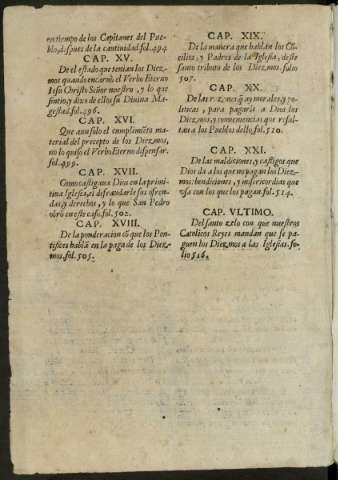 en tiempo de los Capitanes del Pue-
blo, despues de la cautiuidad. fol. 494
CAP. XV.
De el estado que tenian los Diez-
mos quando encarnò el Verbo Eterno
Iesu Christo Señor nuestro, y lo que
sintio, y dixo de ellos su Diuina Ma-
gestad. fol. 496.
CAP. XVI.
Que anuso lo el cumplimiẽto ma-
terial del precepto de los Diezmos,
no lo quiso el Verbo Eterno dispensar.
fol. 499.
CAP. XVII.
Como castigaua Dios en la primi-
tiua Iglesia, el defraudarle sus ofren-
das, y derechos, y lo que San Pedro
obrò en este caso. fol. 502.
CAP. XVIII.
De la ponderacion cõ que los Pon-
tifices hablã en la paga de los Diez-
mos. fol. 505.
CAP. XIX.
De la manera que hablan los Cõ-
cilios, y Padres de la Iglesia, deste
santo tributo de los Diezmos. folio
507.
CAP. XX.
De las razones morales, y po-
liticas, para pagarse à Dios los
Diezmos, y conueniencias que resul-
tan a los Pueblos dello. fol. 510.
CAP. XXI.
De las maldiciones, y castigos que
Dios da a los que no pagan los Diez-
mos: bendiciones, y misericordias que
vsa con los que los pagan. fol. 514.
CAP. VLTIMO.
Del santo zelo con que nuestros
Catolicos Reyes mandan que se pa-
guen los Diezmos a las Iglesias. fo-
lio 516.